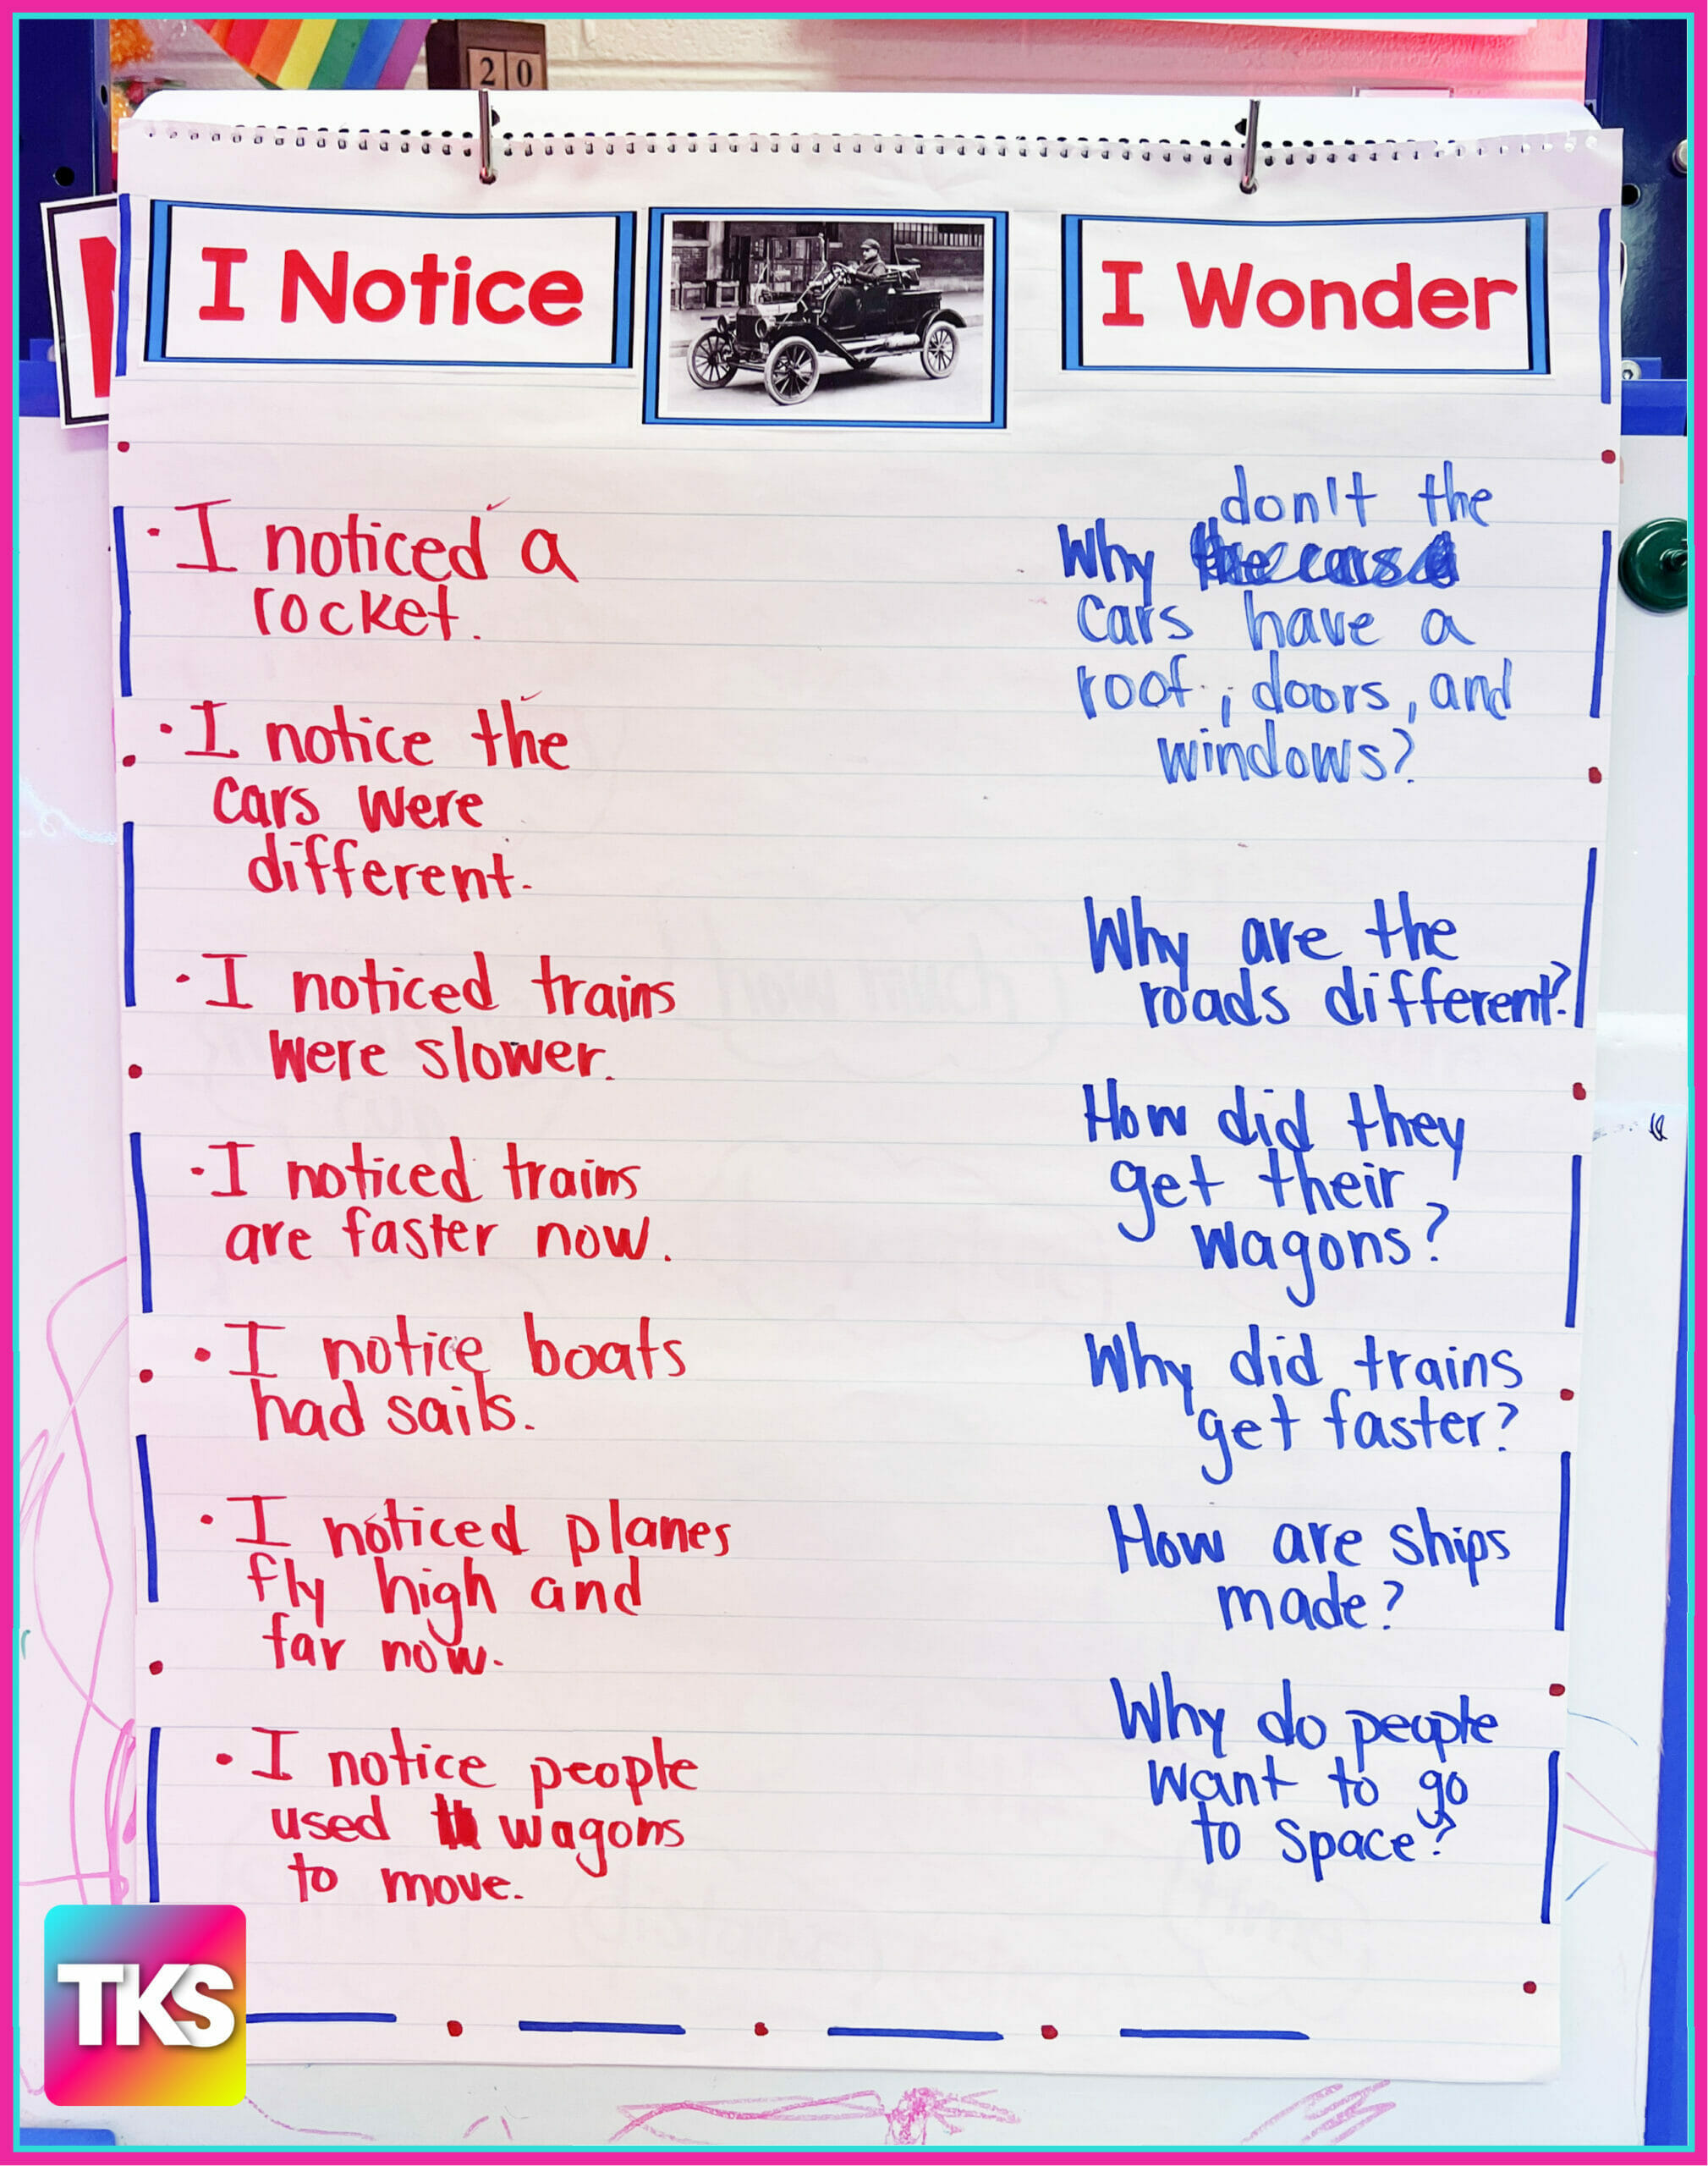 20
I Notice
I Wonder
· I noticed a
rocket.
· I notice the
cars were
different.
· I noticed trains
were slower.
· I noticed trains
are faster now.
· I notice boats
had sails.
· I noticed planes
fly high and
far now.
· I notice people
used wagons
to move.
don't the
Why
cars have a
roof, doors, and
windows?
Why are the
roads different?
How did they
get their
wagons?
Why did trains
get faster?
How are ships
made?
Why do people
want to go
to space?
TKS